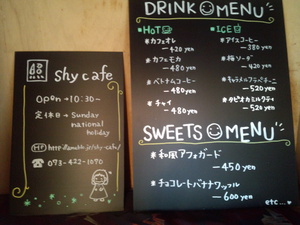 shy cafe
open→10:30〜
定休日→ Sunday
national
holiday
HP http://ameblo.jp/shy-cafe/
☎ 073-422-1070
DRINK☺MENU
HOT
カフェオレ
—420 yen
カフェモカ
—480 yen
ベトナムコーヒー
—480 yen
チャイ
—480 yen
ICE
アイスコーヒー
—380 yen
梅ソーダ
—420 yen
キャラメルフラッペチーノ
—520 yen
タピオカミルクティ
—520 yen
SWEETS☺MENU
和風アフォガード
—450 yen
チョコレートバナナワッフル
—600 yen
etc...